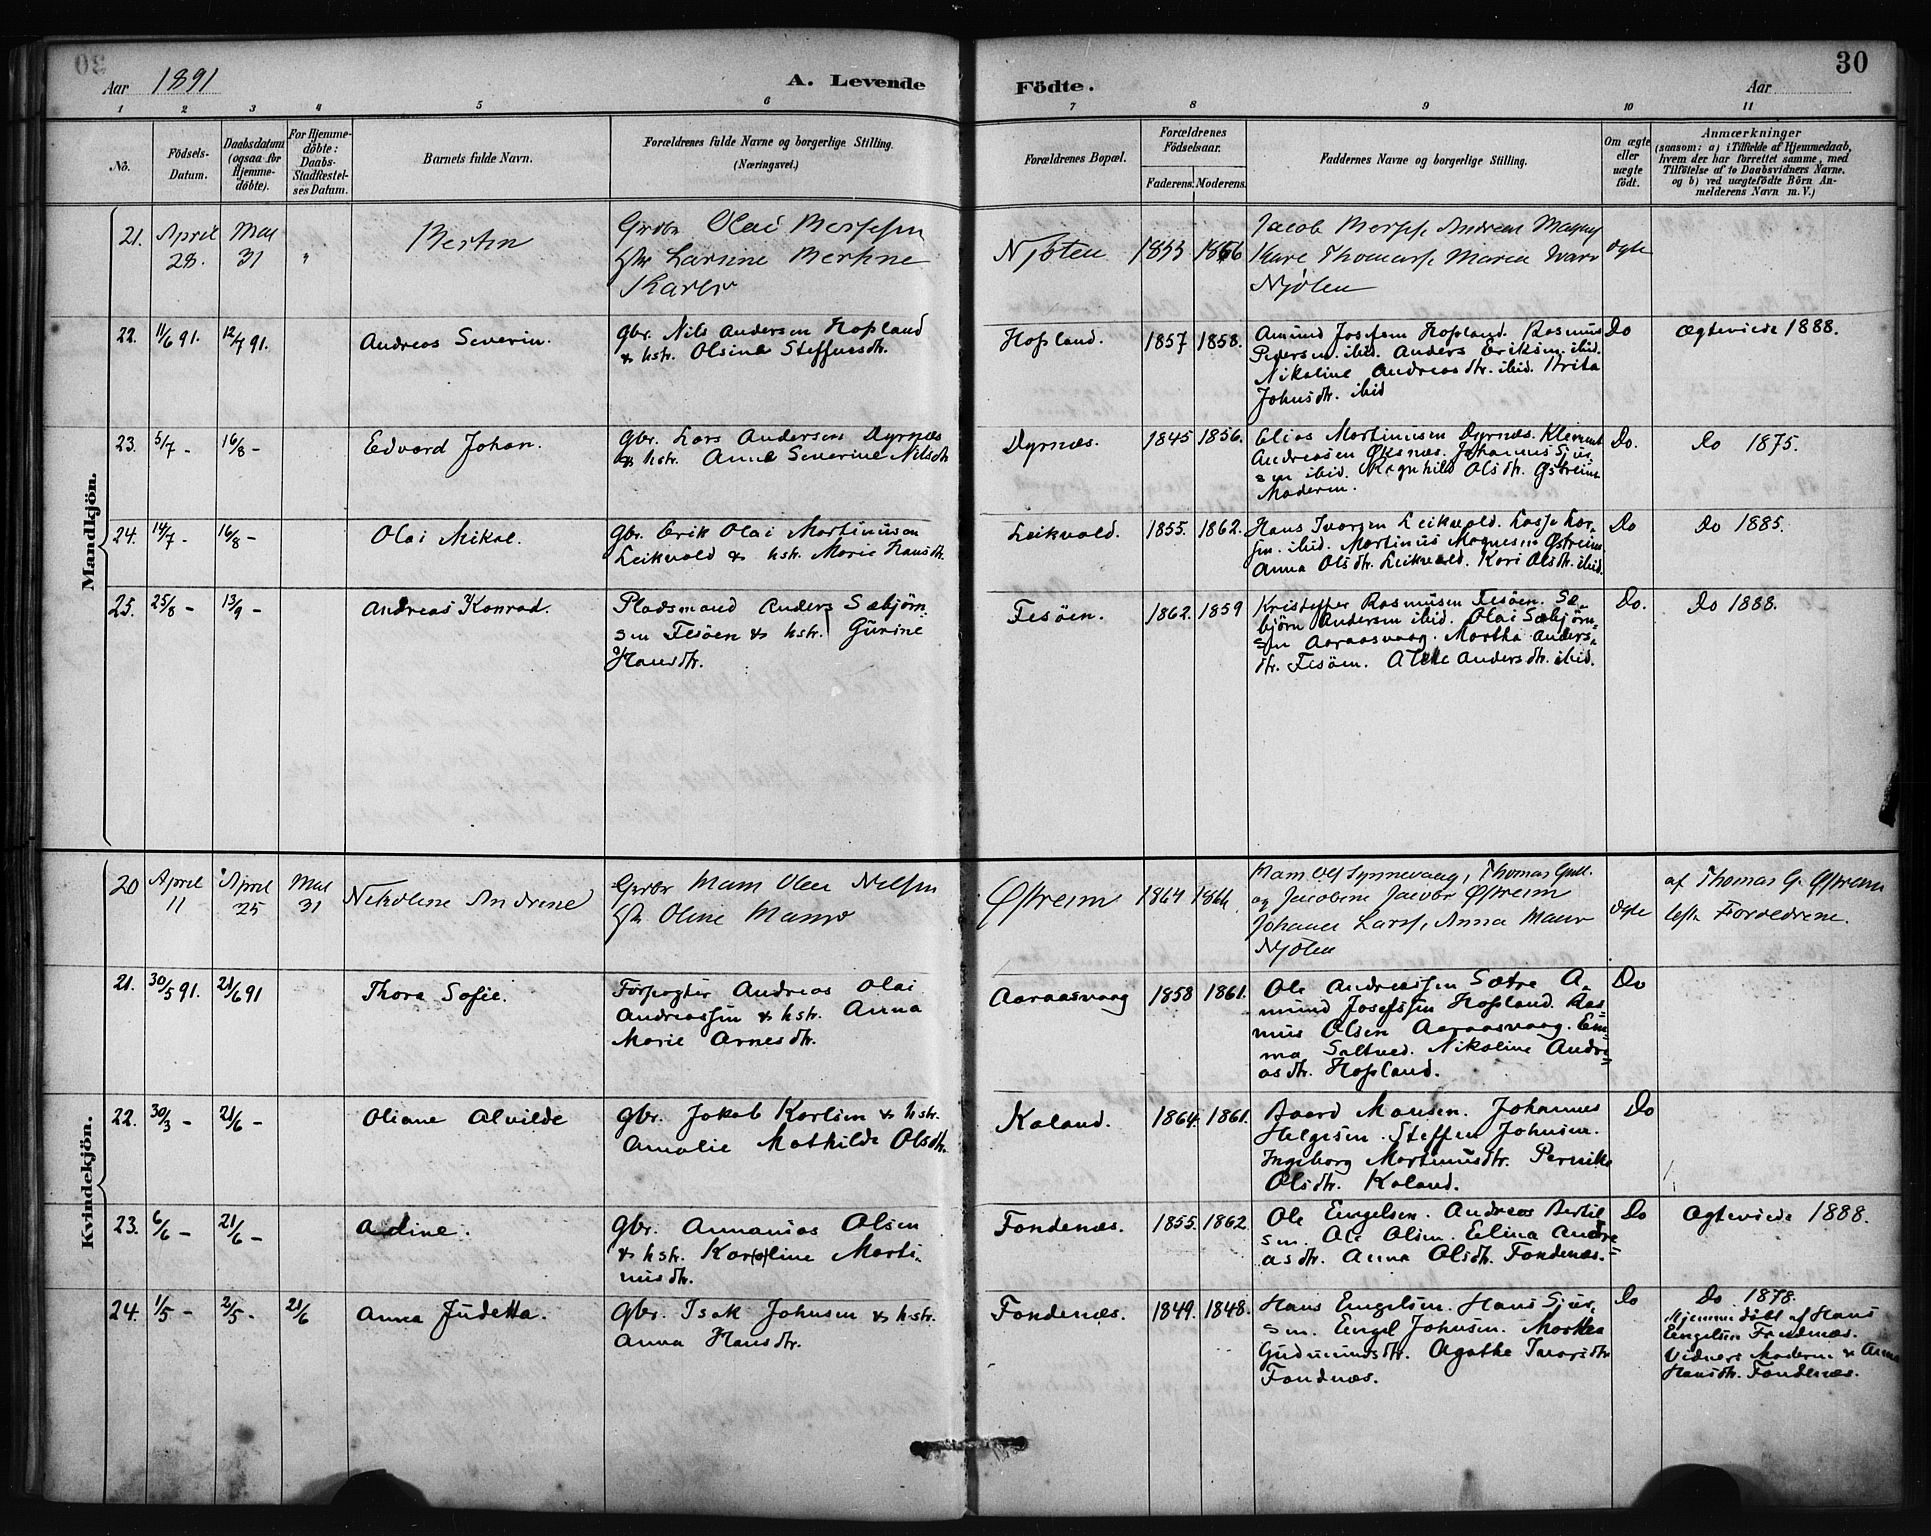 30
Aar 1891
A. Levende
Födte.
Aar
1 2 3 4 5 6 7 8 9 10 11
No.
Födsels-
Datum.
Daabsdatum
(ogsaa for
Hjemme-
döbte).
For Hjemme-
döbte:
Daabs-
Stadfæstel-
ses Datum.
Barnets fulde Navn.
Forældrenes fulde Navne og borgerlige Stilling.
(Næringsvei.)
Forældrenes Bopæl.
Forældrenes
Födselsaar.
Faderens. Moderens.
Faddernes Navne og borgerlige Stilling.
Om ægte
eller
uægte
födt.
Anmærkninger
(saasom: a) i Tilfælde af Hjemmedaab,
hvem der har forrettet samme, med
Tilföielse af to Daabsvidners Navne.
og b) ved uægtefödte Börn An-
melderens Navn m. V.)
Mandkjön.
21.
April
28.
Mai
31
"
Bertin
Grdbr Olai
Larsine Bertine
Njöten
1853
1866
Jacob Andreas
Maria
ægte
22.
11/6 91.
12/7 91.
Andreas Severin.
gbr. Nils Andersen Hopland
& hstr. Olsine Steffensdtr.
Hopland.
1857
1858.
Amund Josefsen Hopland. Rasmus
Pedersen. ibid. Anders Eriksen. ibid.
Nikoline Andreasdtr. ibid. Brita
Johnsdtr. ibid
Do
Ægteviede 1888.
23.
5/7 -
16/8 -
Edvard Johan.
gbr. Lars Andersen Dyrnæs
& hstr. Anne Severine Nilsdtr
Dyrnæs.
1845
1856.
Elias Martinusen Dyrnæs. Klement
Andreasen Øksnæs. Johannes Sjur-
sen ibid. Ragnhild Olsdtr. Østreim
Moderen.
Do.
Do 1875.
24.
14/7 -
16/8 -
Olai Mikal.
gbr. Erik Olai Martinusen
Leikvold & hstr. Marie Hansdtr.
Leikvold.
1855.
1862.
Hans Ivarsen Leikvold. Lasse Lar-
sen. ibid. Martinus Magnesen Østreim
Anna Olsdtr. Leikvold. Kari Olsdtr. ibid.
Do
Do 1885.
25.
25/8 -
13/9 -
Andreas Konrad.
Pladsmand Anders Sæbjørn-
sen Fesöen & hstr. Gurine
Hansdtr.
Fesöen.
1862.
1859
Kristoffer Rasmusen Fesöen. Sæ-
bjørn Andersen ibid. Olai Sæbjørn-
sen Aaraasvaag. Martha Anders-
dtr. Fesöen. Andersdtr. ibid.
Do.
Do 1888.
Kvindekjön.
20
April
11
April
25
Mai
31
Nikoline Andrine
Grdbr Mam Olai Nilsen
Oline
Østreim
1864
Synnevaag, Thomas Gull.
og Jacobine Østreim
Johannes Anna
Njöten
ægte
af Thomas G. Østreim
Forældrene.
21.
30/5 91.
21/6 91
Thora Sofie.
Forpagter Andreas Olai
Andreassen & hstr. Anna
Marie Arnesdtr.
Aaraasvaag
1858
1861.
Ole Andreassen Sætre A-
mund Josefssen Hopland. Ras-
mus Olsen Aaraasvaag. Em-
ma Saltned. Nikoline Andre-
asdtr. Hopland.
Do
22.
30/3 -
21/6 -
Oliane Alvilde
gbr. Jakob Karlsen & hstr.
Amalie Mathilde Olsdtr.
Kaland.
1864.
1861.
Baard Monsen. Johannes
Helgesen. Steffen Johnsen.
Ingeborg Martinusdtr. Pernike
Olsdtr. Kaland.
Do
23.
6/6 -
21/6 -
Adine.
gbr. Annanias Olsen
& hstr. Kar(o)line Marti-
nusdtr.
Fondenæs.
1855.
1862.
Ole Engelsen. Andreas Bertil
sen. Ole Olsen. Elina Andre-
asdtr. Anna Olsdtr. Fondenæs.
Do
Ægteviede 1888.
24.
1/5 -
2/5 -
21/6
Anna Judetta.
gbr. Isak Johnsen & hstr.
Anna Hansdtr.
Fondenæs.
1849.
1848.
Hans Engelsen. Hans Sjur-
sen. Engel Johnsen. Martha
Gudmundsdtr. Agathe Ivarsdtr
Fondnæs.
Do
Do 1878.
Hjemmedöbt af Hans
Engelsen Fondenæs.
Vidner: Moderen & Anna
Hansdtr. Fondenæs.